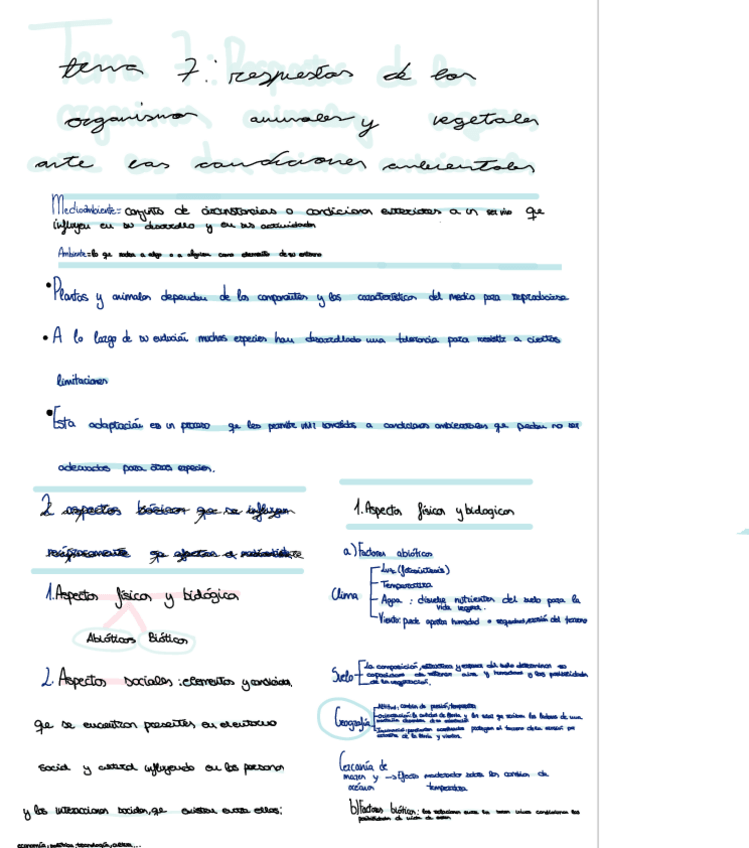 tema 7: respuestas de los
organismos animales y vegetales
ante las condiciones ambientales
Medioambiente = conjunto de circunstancias o condiciones exteriores a un ser vivo que
influyen en su desarrollo y en sus actividades
Ambiente = lo que rodea a algo o a alguien como elemento de su entorno
• Plantas y animales dependen de los componentes y las características del medio para reproducirse
• A lo largo de su evolución muchas especies han desarrollado una tolerancia para resistir a ciertas
limitaciones
• Esta adaptación es un proceso que les permite vivir sometidos a condiciones ambientales que pueden no ser
adecuados para otras especies.
2 aspectos básicos que se influyen
recíprocamente que afectan al
1. Aspectos físicos y biológica
Abióticos Bióticos
2. Aspectos sociales: elementos y
que se encuentran presentes en el entorno
social y cultural influyendo en las personas
y las interacciones sociales, que existen entre ellas:
economía, política, tecnología,
1. Aspectos físicos y biologicos
a) Factores abióticos
Clima
Luz (fotosíntesis)
Temperatura
Agua: disuelve nutrientes del suelo para la
vida vegetal.
Viento: puede aportar humedad o erosión del terreno
Suelo
la composición, estructura y espesor del suelo determinan su
capacidad de retener aire y humedad y las posibilidades
de la vegetación.
Geografía
Altitud, cambia de presión, temperatura
de la lluvia y vientos.
Cercanía de
mares y → Efecto moderador sobre los cambios de
océanos temperatura
b) Factores bióticos: las relaciones entre los seres vivos condicionan las
posibilidades de vida de estos